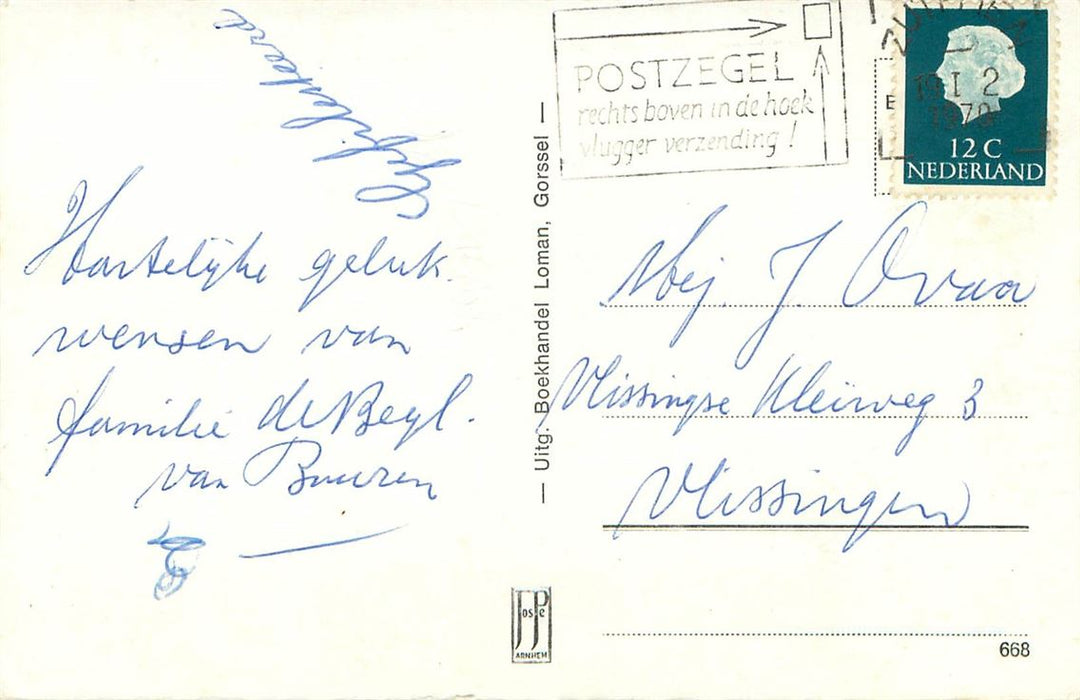 Gefeliciteerd
Hartelijke geluk.
wensen van
familie de Beyl.
van Buuren
POSTZEGEL
rechts boven in de hoek
vlugger verzending!
12 C
NEDERLAND
Mej. J. Ovaa
Vlissingse Kleiweg 3
Vlissingen
— Uitg. Boekhandel Loman, Gorssel —
JosPé
ARNHEM
668